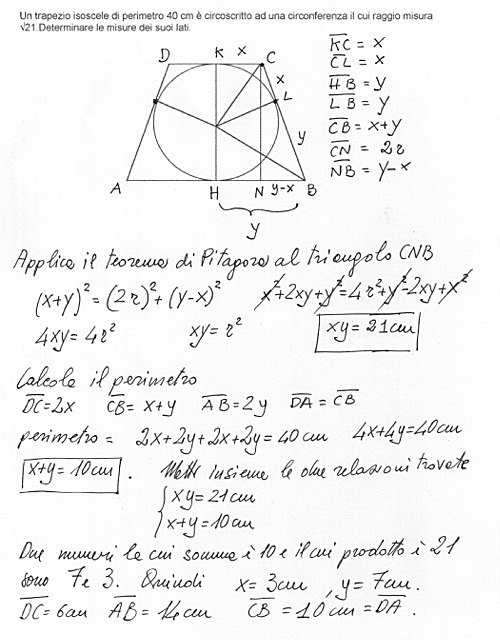 Un trapezio isoscele di perimetro 40 cm è circoscritto ad una circonferenza il cui raggio misura
√21.Determinare le misure dei suoi lati.
D K x C
x
L
y
A H N y-x B
y
KC = x
CL = x
HB = y
LB = y
CB = x+y
CN = 2r
NB = y-x
Applico il teorema di Pitagora al triangolo CNB
(x+y)² = (2r)² + (y-x)² x²+2xy+y²=4r²+y²-2xy+x²
4xy = 4r² xy = r² xy = 21cm
Calcolo il perimetro
DC=2x CB= x+y AB=2y DA = CB
perimetro = 2x+2y+2x+2y=40cm 4x+4y=40cm
x+y=10cm . Metto insieme le due relazioni trovate
{ xy=21cm
x+y=10cm
Due numeri la cui somma è 10 e il cui prodotto è 21
sono 7 e 3. Quindi x=3cm, y=7cm.
DC=6cm AB=14cm CB=10cm=DA.